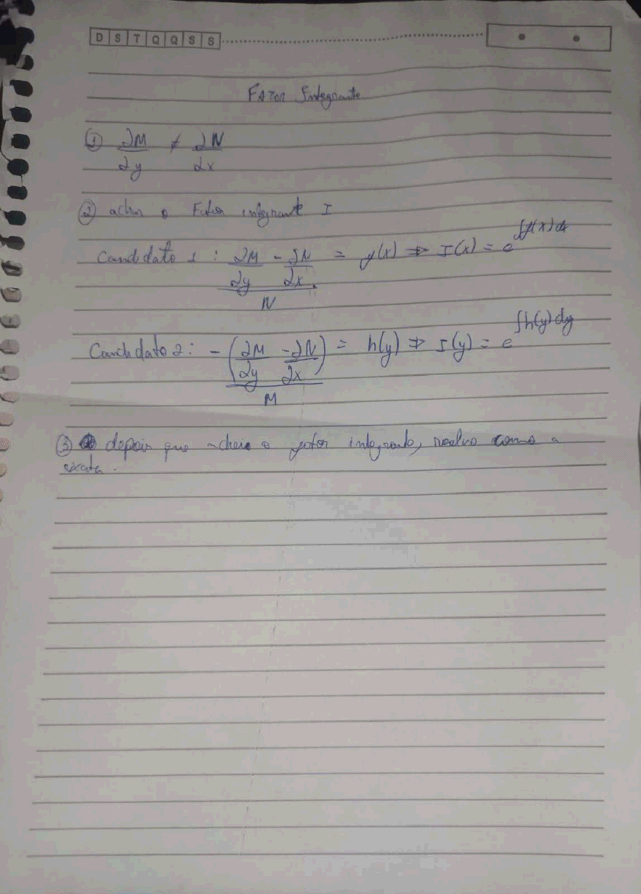 D S T Q Q S S
Fator Integrante
① ∂M/∂y ≠ ∂N/∂x
② achar o Fator integrante I
Candidato 1 : (∂M/∂y - ∂N/∂x)/N = g(x) ⇒ I(x) = e^∫g(x)dx
Candidato 2: -(∂M/∂y - ∂N/∂x)/M = h(y) ⇒ I(y) = e^∫h(y)dy
③ depois que achou o fator integrante, resolve como a
exata.